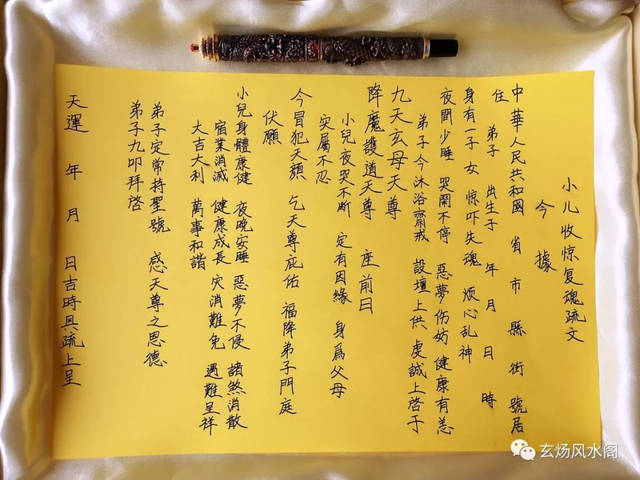 小儿收惊复魂疏文
今據
中華人民共和國 省 市 縣 街 號居
住 弟子 出生于 年 月 日 時
身有一子 女 惊吓失魂 烦心乱神
夜間少睡 哭鬧不停 惡夢伤妨 健康有恙
弟子今沐浴齋戒 設壇上供 虔誠上啓于
九天玄母天尊
降魔護道天尊 座前曰
小兒夜哭不断 定有因緣 身爲父母
实屬不忍
今冒犯天顏 乞天尊庇佑 福降弟子門庭
伏願
小兒身體康健 夜晚安睡 惡夢不侵 諸煞消散
宿業消滅 健康成長 灾消難免 遇難呈祥
大吉大利 萬事和諧
弟子定常持聖號 感天尊之恩德
弟子九叩拜啓
天運 年 月 日吉時具疏上呈
玄炀风水阁